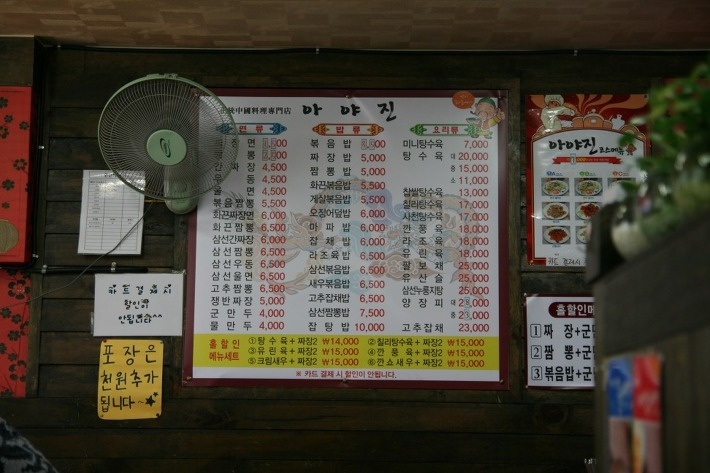 統中國料理專門店 아야진
면류 밥류 요리류
볶음밥
짜장밥 5,000
짬뽕밥 5,000
화끈볶음밥 5,500
게살볶음밥 6,000
오징어덮밥 6,000
마파밥 6,000
잡채밥 6,000
라조육밥 6,500
삼선볶음밥 6,500
새우볶음밥 6,500
고추잡채밥 6,500
삼선짬뽕밥 7,500
잡탕밥 10,000
4,500
4,500
볶음짬뽕 5,000
화끈짜장면 6,000
화끈짬뽕 6,000
삼선간짜장 6,000
삼선짬뽕 6,000
삼선우동 6,000
삼선울면 6,000
고추짬뽕 6,500
쟁반짜장 5,000
군만두 4,000
물만두 4,000
미니탕수육 7,000
탕수육 대 20,000
중 15,000
소 11,000
찹쌀탕수육 13,000
칠리탕수육 17,000
사천탕수육 17,000
깐풍육 18,000
라조육 18,000
유린육 18,000
팔보채 25,000
유산슬 25,000
삼선누룽지탕 25,000
양장피 대
중
고추잡채 23,000
홀할인 메뉴세트
①탕수육+짜장2 ₩14,000 ②칠리탕수육+짜장2 ₩15,000
③유린육+짜장2 ₩15,000 ④깐풍육+짜장2 ₩15,000
⑤크림새우+짜장2 ₩15,000 ⑥깐쇼새우+짜장2 ₩15,000
※ 카드 결제 시 할인이 안됩니다.
카드결제시
할인이
안됩니다^^
포장은
천원추가
됩니다~★
아야진 코스메뉴
카드 결제시
홀할인메
1 짜장+군만
2 짬뽕+군
3 볶음밥+군